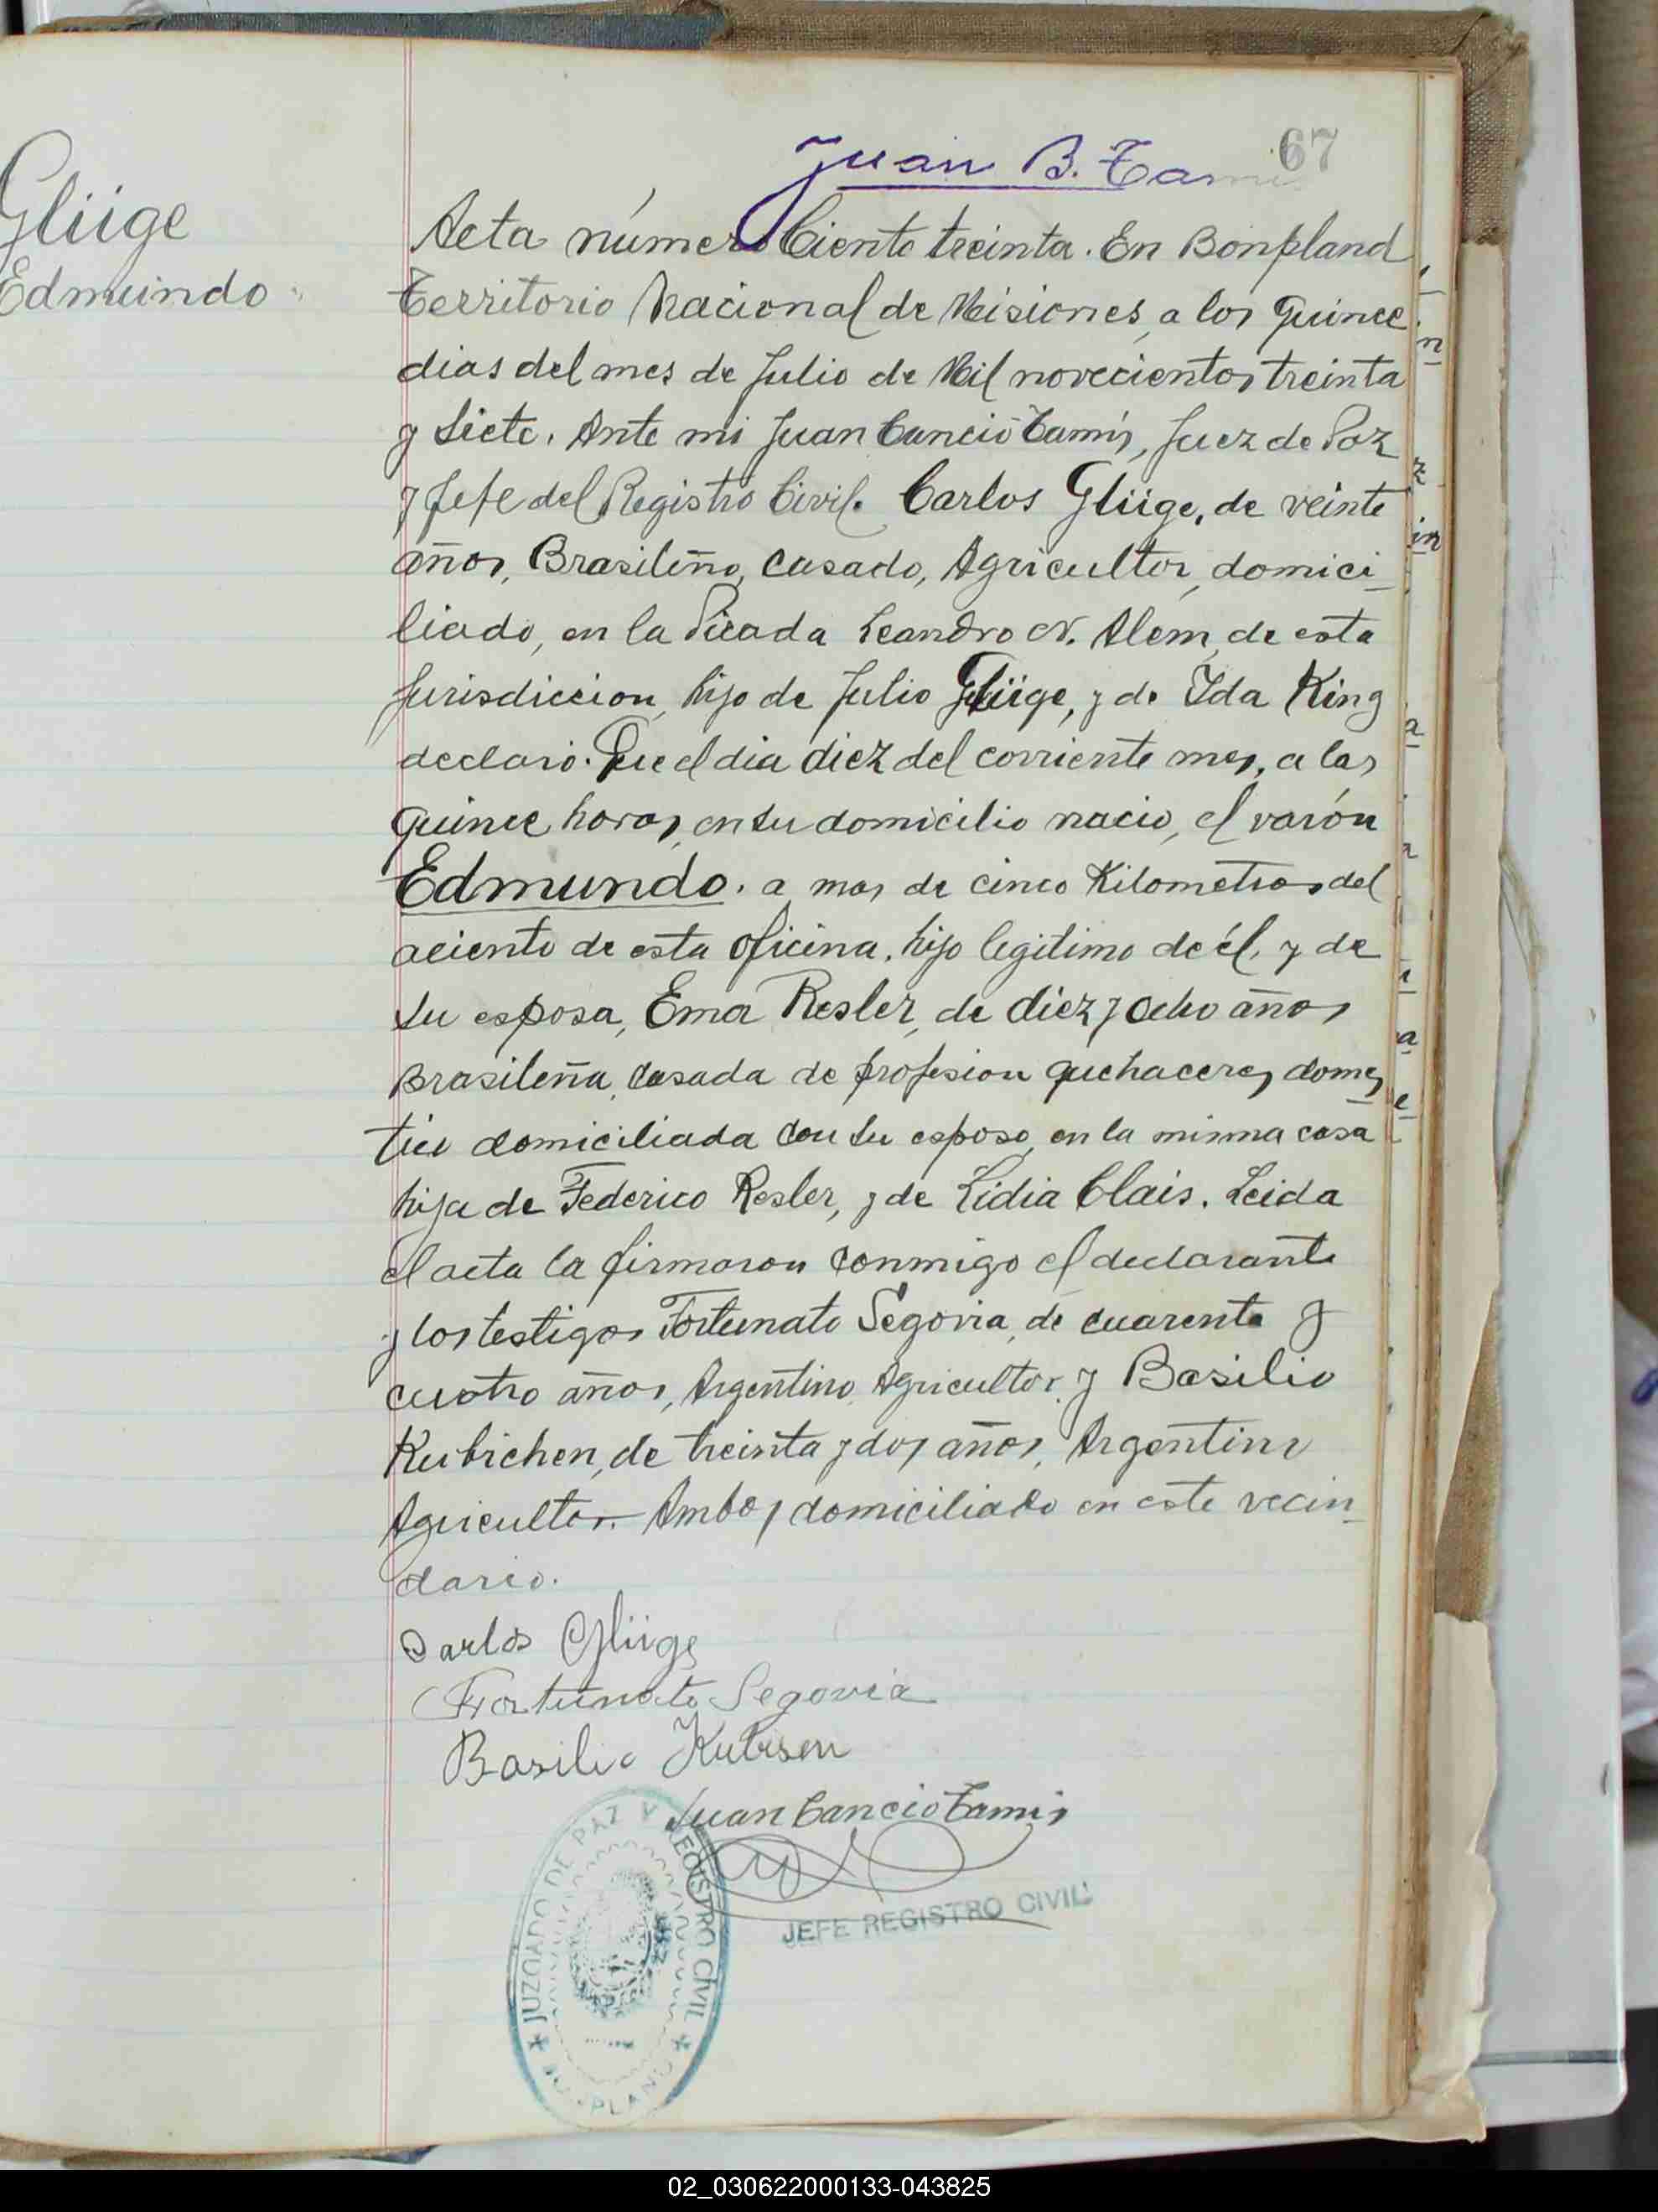 67
Juan B. Tami
Glüge
Edmundo
Acta número Ciento treinta. En Bonpland
Territorio Nacional de Misiones, a los quince
dias del mes de Julio de Mil novecientos treinta
y Siete. Ante mi Juan Cancio Tamis, Juez de Paz
y Jefe del Registro Civil. Carlos Glüge, de veinte
años, Brasileño, casado, Agricultor, domici_
liado, en la Picada Leandro N. Alem, de esta
Jurisdiccion, hijo de Julio Glüige, y de Ida King
declaró. Que el dia diez del corriente mes, a las
quince horas, en su domicilio nacio, el varón
Edmundo. a mas de cinco Kilometros del
aciento de esta oficina, hijo legitimo de él, y de
su esposa, Ema Resler, de diez y ocho años
Brasileña, casada de profesion quehaceres domes
tico domiciliada con su esposo, en la misma casa
hija de Federico Resler, y de Lidia Clais. Leida
el acta la firmaron conmigo el declarante
y los testigos Fortunato Segovia, de cuarenta y
cuatro años, Argentino, Agricultor, y Basilio
Kubichen, de treinta y dos años, Argentino
Agricultor. Ambos domiciliado en este vecin_
dario.
Carlos Glüge
Fortunato Segovia
Basilio Kubisen
Juan Cancio Tamis
JEFE REGISTRO CIVIL
JUZGADO DE PAZ Y REGISTRO CIVIL
BONPLAND
02_030622000133-043825